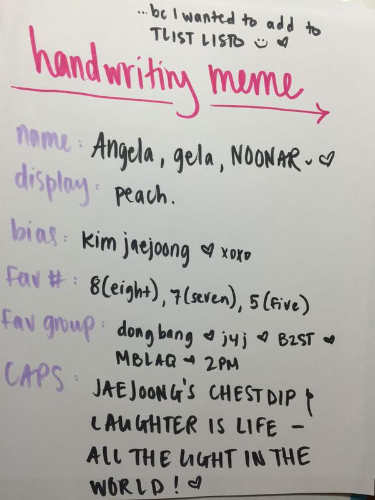 ...bc I wanted to add to
TLIST LISTO ☺ ♡
handwriting meme
name: Angela, gela, NOONAR~♡
display: peach.
bias: Kim jaejoong ♡ xoxo
Fav #: 8(eight), 7(seven), 5(five)
Fav group: dongbang ♡ jyj ♡ B2ST ♥
MBLAQ ♥ 2PM
CAPS: JAEJOONG'S CHESTDIP
LAUGHTER IS LIFE -
ALL THE LIGHT IN THE
WORLD! ♡